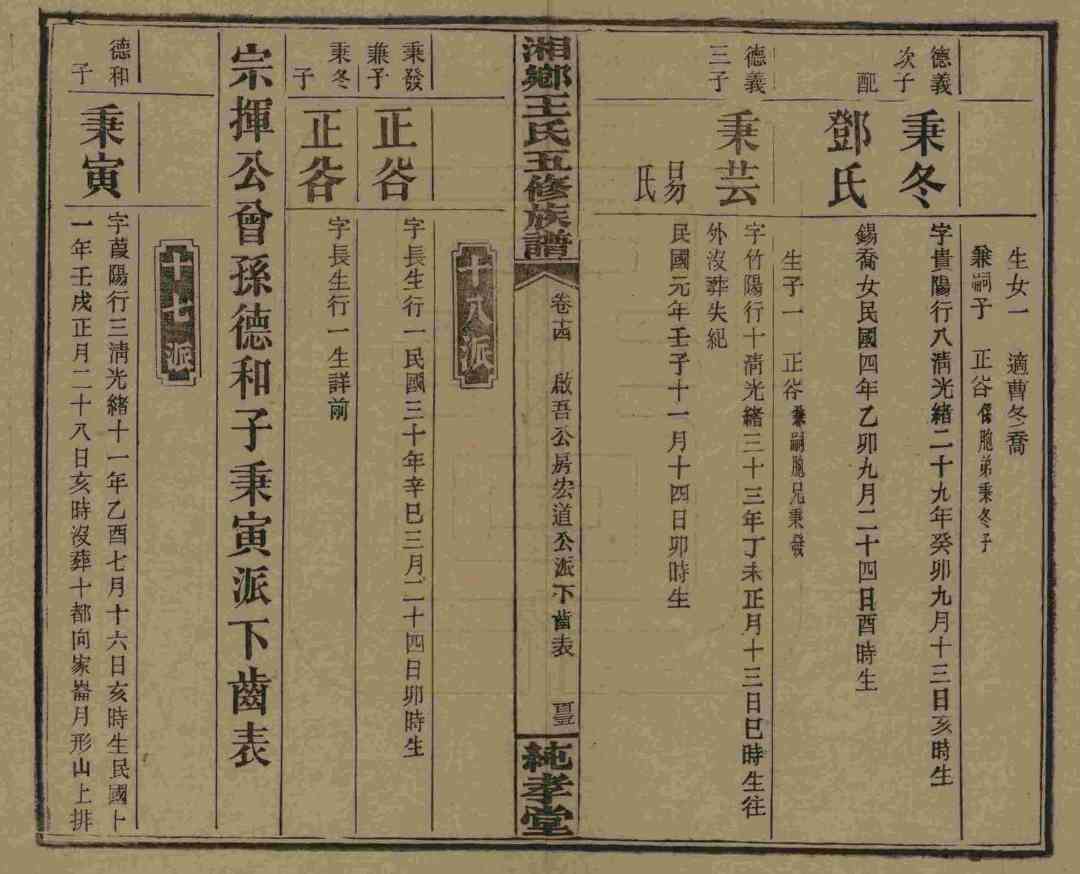 生女一　適曹冬喬
兼祧子　正谷係胞弟秉冬子
德義次子
秉冬
字貴陽行八淸光緒二十九年癸卯九月十三日亥時生
配
鄧氏
錫喬女民國四年乙卯九月二十四日酉時生
生子一　正谷兼嗣胞兄秉發
德義三子
秉芸
字竹陽行十淸光緒三十三年丁未正月十三日巳時生往
外沒葬失紀
易氏
民國元年壬子十一月十四日卯時生
湘鄉王氏五修族譜
卷十四　啟吾公房宏道公派下齒表
純孝堂
十八派
秉發兼子
正谷
字長生行一民國三十年辛巳三月二十四日卯時生
秉冬子
正谷
字長生行一生詳前
宗揮公曾孫德和子秉寅派下齒表
十七派
德和子
秉寅
字葭陽行三淸光緒十一年乙酉七月十六日亥時生民國十
一年壬戌正月二十八日亥時沒葬十都向家崙月形山上排